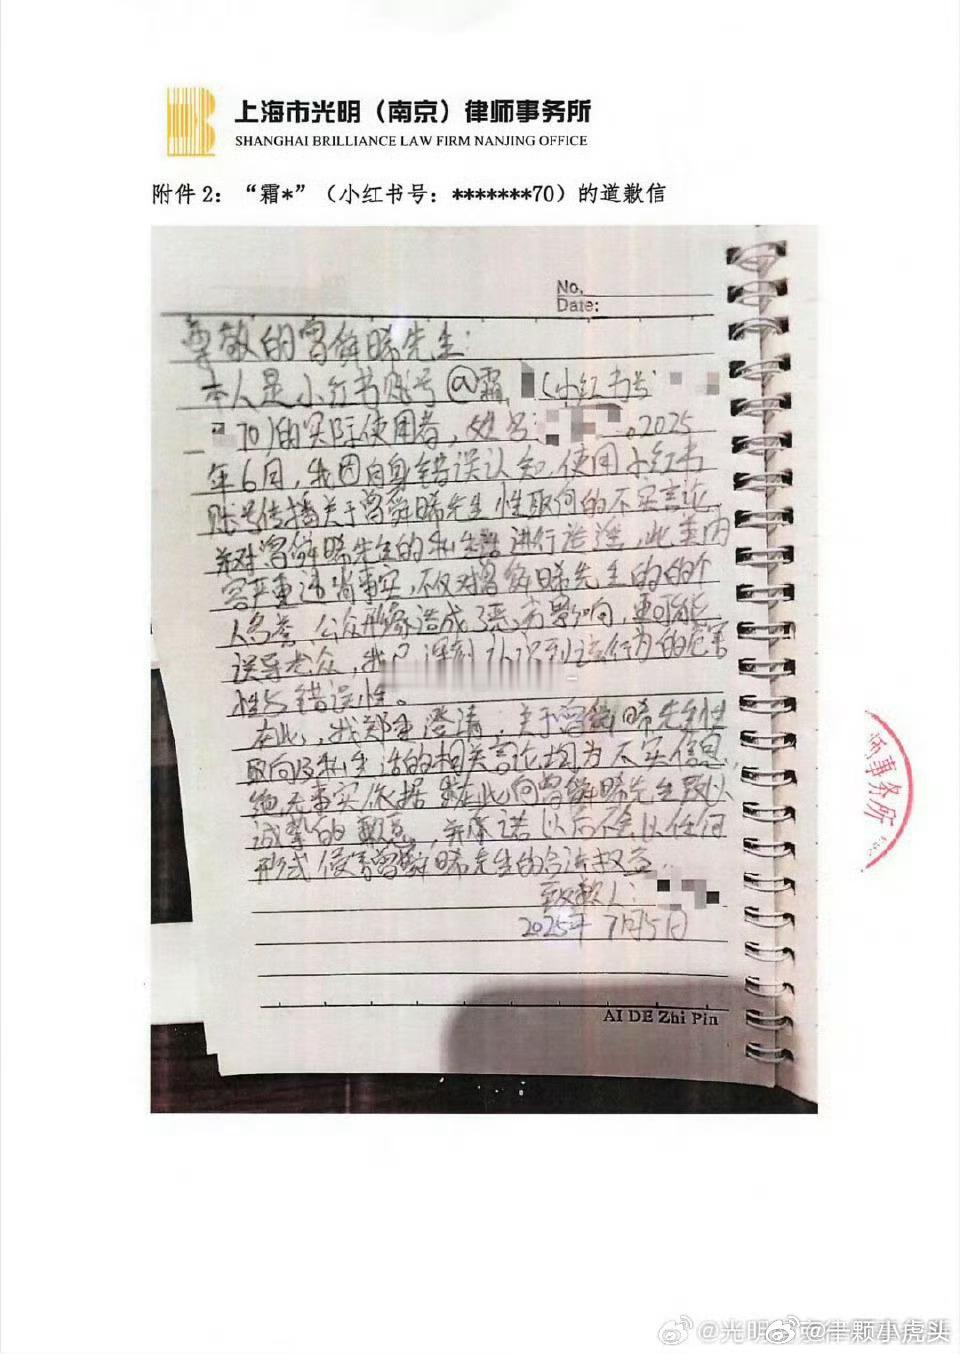 上海市光明（南京）律师事务所
SHANGHAI BRILLIANCE LAW FIRM NANJING OFFICE
附件 2：“霜*”（小红书号：*******70）的道歉信
No.
Date:
尊敬的曾舜晞先生：
本人是小红书账号@霜 （小红书号
70)的实际使用者，姓名： 。2025
年6月，我因自身错误认知，使用小红书
账号传播关于曾舜晞先生性取向的不实言论，
并对曾舜晞先生的私生活进行造谣，此类内
容严重违背事实，不仅对曾舜晞先生的的个
人名誉、公众形象造成恶劣影响，更可能
误导公众，我已深刻认识到该行为的危害
性与错误性。
在此，我郑重澄清：关于曾舜晞先生性
取向及私生活的相关言论均为不实信息，
绝无事实依据 我在此向曾舜晞先生致以
诚挚的歉意，并承诺以后不会以任何
形式侵害曾舜晞先生的合法权益。
致歉人：
2025年 7月5日
AI DE Zhi Pin
师事务所
@光明
@律颗小虎头